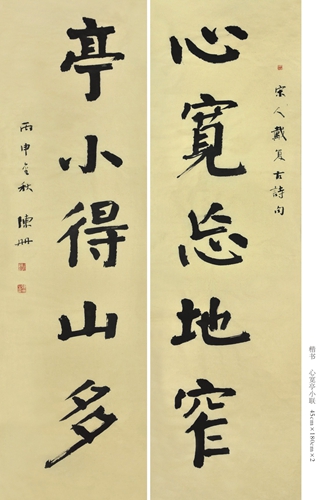 宋人戴复古詩句
心寬忘地窄
亭小得山多
丙申金秋 陳冊
楷书 心宽亭小联 45cm×180cm×2